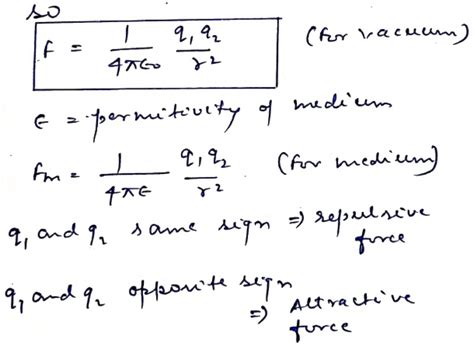 so
F = 1/4π∈₀ q₁q₂/r² (for vacuum)
∈ = permitivity of medium
Fm = 1/4π∈ q₁q₂/r² (for medium)
q₁ and q₂ same sign ⇒ repulsive
force
q₁ and q₂ opposite sign
⇒ Attractive
force